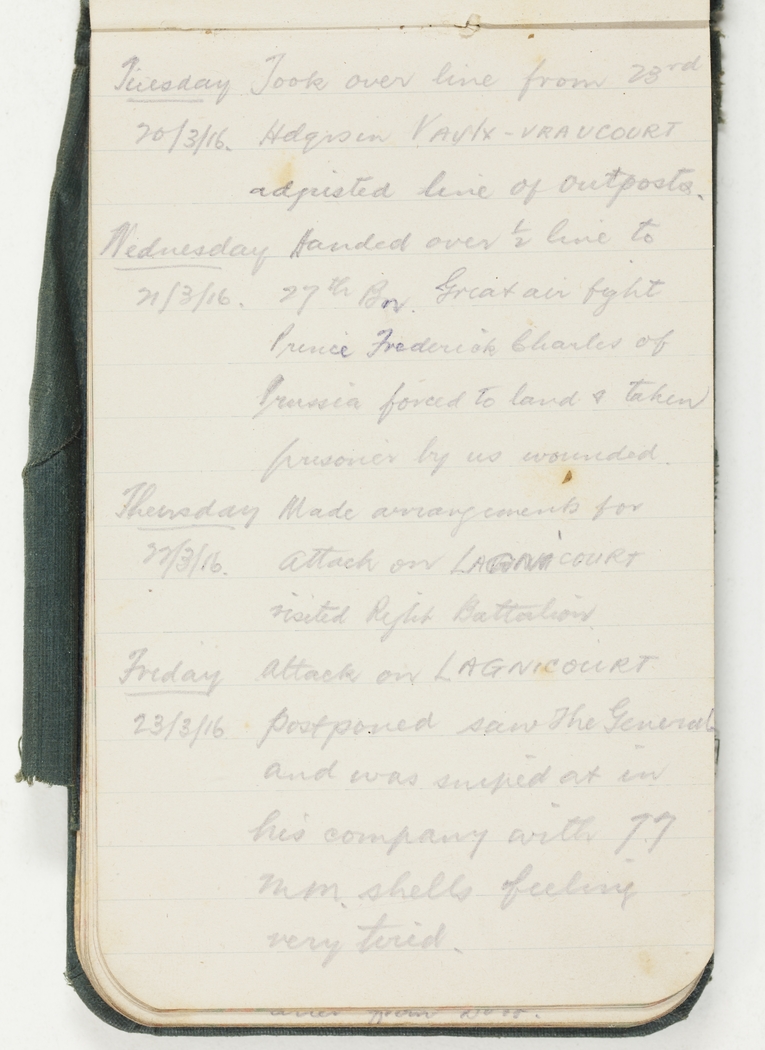 Tuesday Took over line from 23rd
20/3/16. Hdqrs in VAULX-VRAUCOURT
adjusted line of outposts.
Wednesday Handed over ½ line to
21/3/16. 27th Bn. Great air fight
Prince Frederick Charles of
Prussia forced to land & taken
prisoner by us wounded.
Thursday Made arrangements for
22/3/16. attack on LAGNICOURT
visited Right Battalion.
Friday Attack on LAGNICOURT
23/3/16 postponed saw The General
and was sniped at in
his company with 77
m.m. shells feeling
very tired.
from